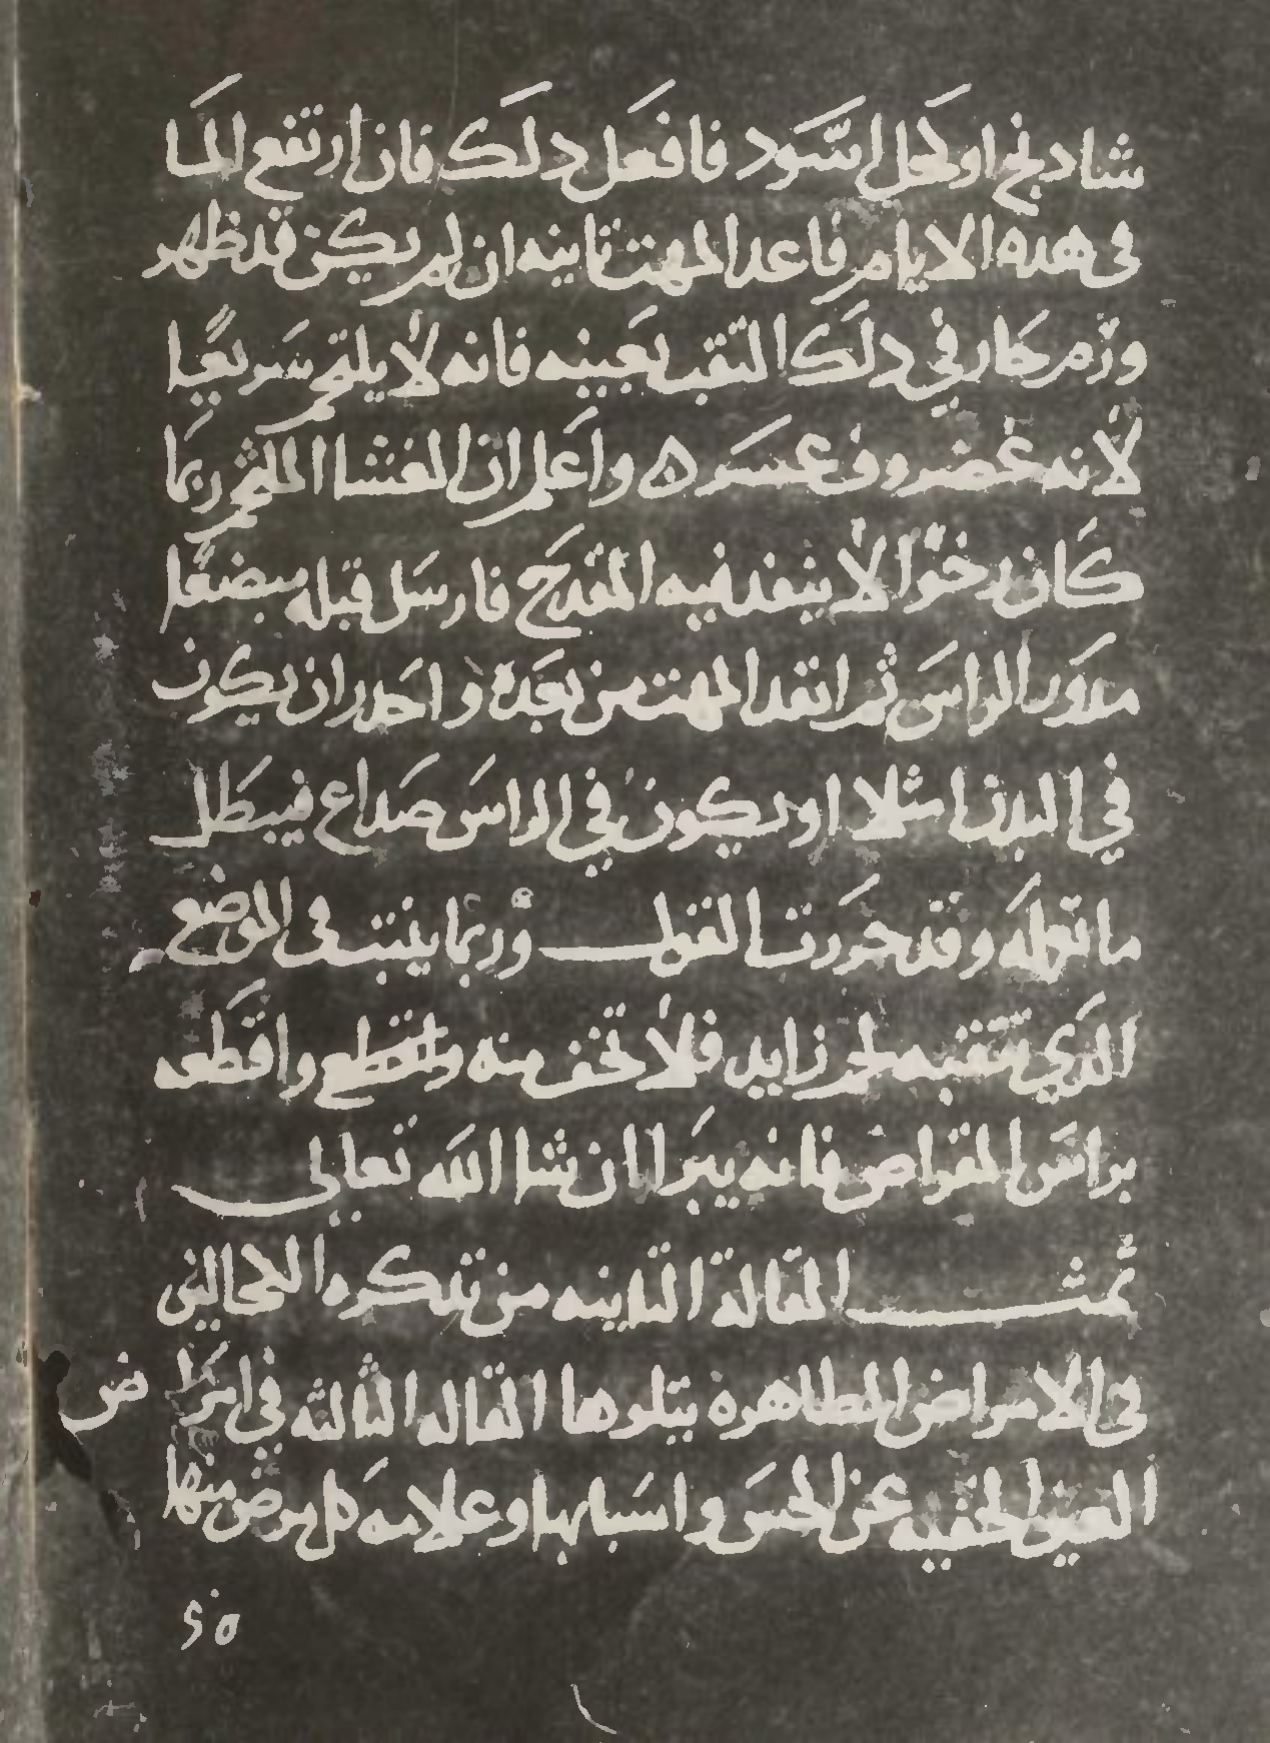 شادنج او كحل اسود فافعل ذلك فان ارتفع الما
فى هذه الايام فاعد المهت ثانيه ان لم يكن قد ظهر
ورم حار في ذلك الثقب بعينه فانه لا يلتحم سريعًا
لانه غضروف عسره واعلم ان الغشا الملتحم ربما
كان رخوًا لا ينفد فيه المقدح فارسل قبله مبضعًا
مدور الراس ثم انفد المهت من بعده واحدر ان يكون
في البدن امتلا او يكون في الراس صداع فيبطل
ما تعمله وقد حررت القول وربما ينبت فى الموضع
الذي تثقبه لحم زايد فلا تخف منه واقطعه
براس المقراض فانه يبرا ان شا الله تعالى
تمت المقالة الثانيه من تذكره الكحالين
فى الامراض الظاهره يتلوها المقاله الثالثه في امراض
العين الخفيه عن الحس واسبابها وعلامه كل مرض منها